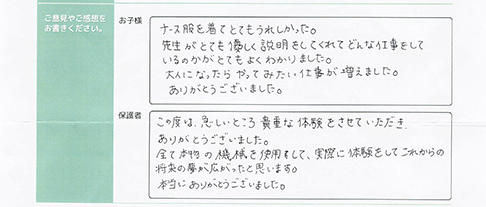 ご意見やご感想を
お書きください。
お子様
ナース服を着てとてもうれしかった。
先生がとても優しく説明をしてくれてどんな仕事をして
いるのかがとてもよくわかりました。
大人になったらやってみたい仕事が増えました。
ありがとうございました。
保護者
この度は、忙しいところ貴重な体験をさせていただき、
ありがとうございました。
全て本物の機械を使用して、実際に体験をしてこれからの
将来の夢が広がったと思います。
本当にありがとうございました。